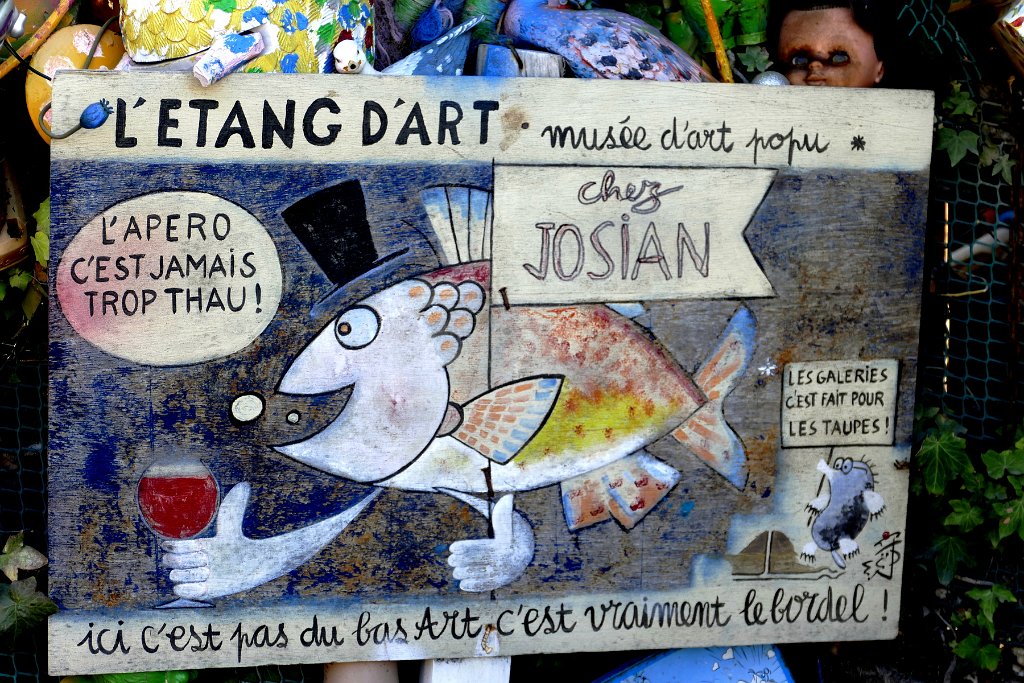 L'ETANG D'ART. musée d'art popu *
chez
JOSIAN
L'APERO
C'EST JAMAIS
TROP THAU !
LES GALERIES
C'EST FAIT POUR
LES TAUPES !
ici c'est pas du bas Art, c'est vraiment le bordel !